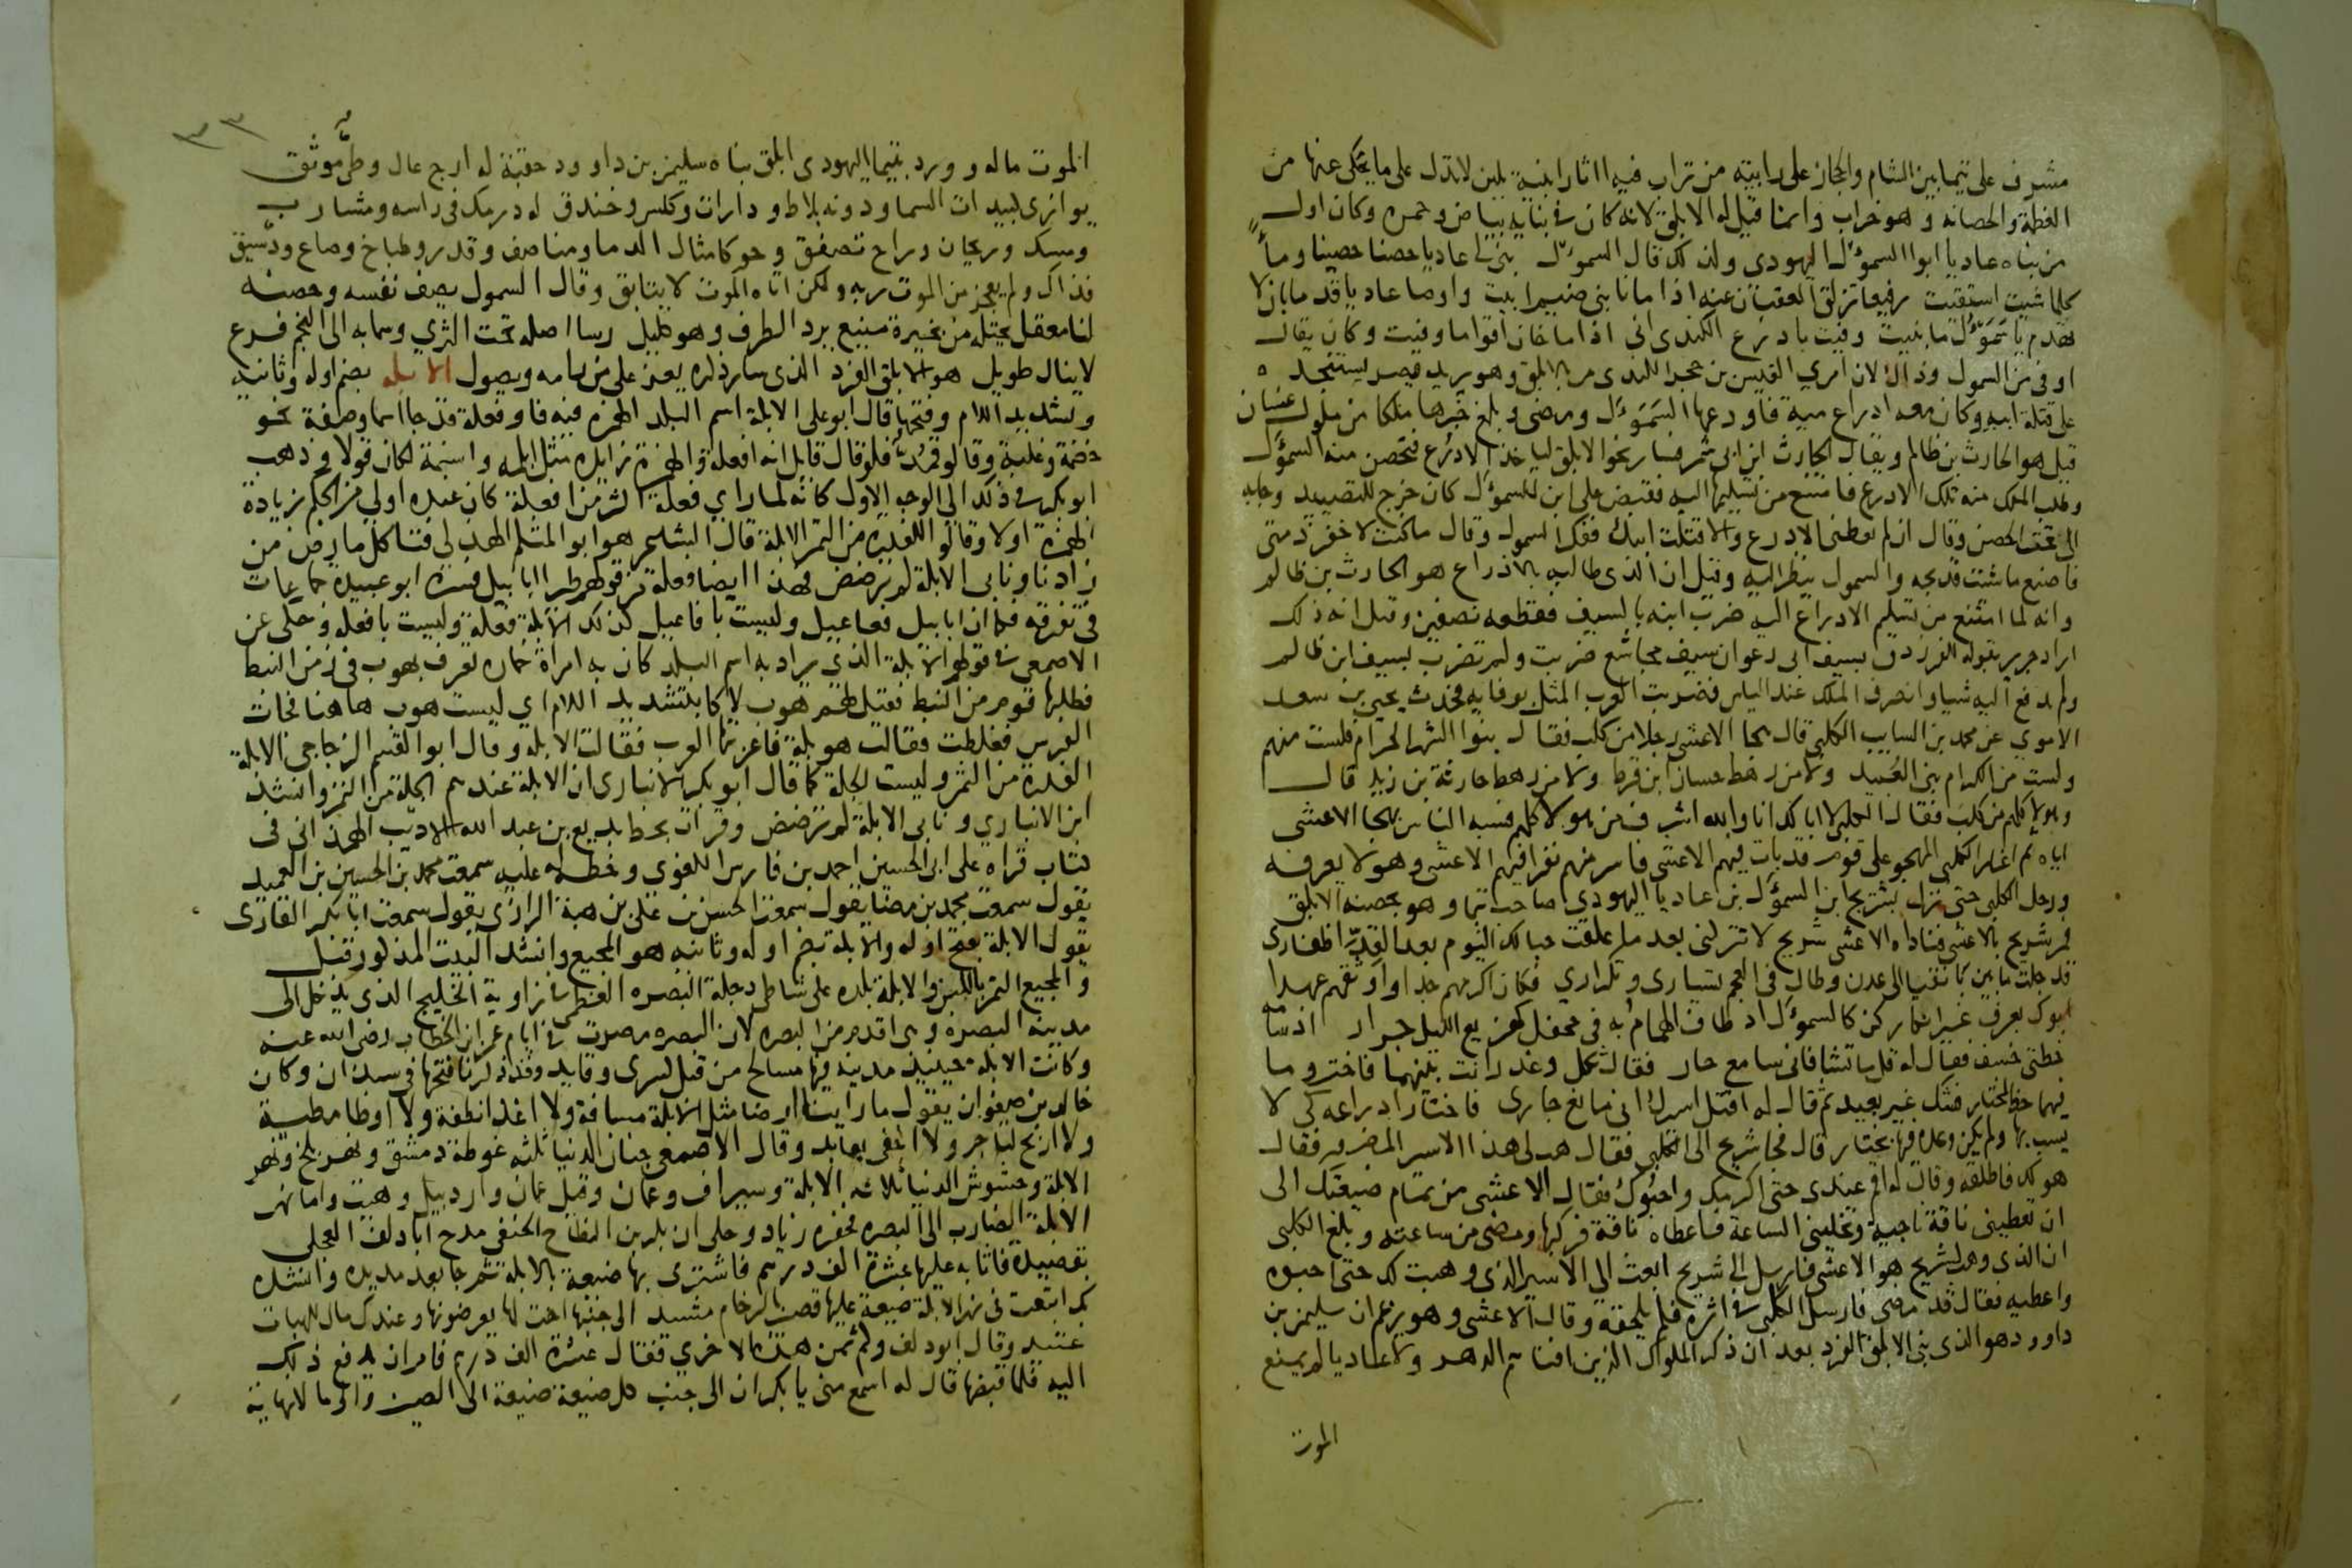 مشرف على تيما بين الشام والحجاز على رابية من تراب فيه اثار ابنية بلبن لا تدل على ما يحكى عنها من
العظمة والحصانة وهو خراب وانما قيل له الابلق لانه كان في بنايه بياض وحمرة وكان اول
من بناه عاديا ابو السموّل اليهودى ولذلك قال السموّل بنى لى عاديا حصنا حصينا وماء
كلما شيت استقيت رفيعا تزلق العقبان عنه اذا ما نابنى ضيم ابيت واوصا عاديا قدما بان لا
تهدم يا سموّل ما بنيت وفيت بادرع الكندى انى اذا ما خان اقواما وفيت وكان يقال
اوفى من السمول وذلك لان امرى القيس بن حجر الكندى مر بالابلق وهو يريد قيصر يستنجده
على قتلة ابيه وكان معه ادراع مية فاودعها السَمَوَّل ومضى وبلغ خبرها ملكا من ملوك غسان
قيل هو الحارث بن ظالم ويقال الحارث ابن ابى شمر فسار نحو الابلق لياخذ الادرع فتحصن منه السموّل
وطلب الملك منه تلك الادرع فامتنع من تسليمها اليه فقبض على ابن للسموّل كان خرج للتصيد وجا به
الى تحت الحصن وقال ان لم تعطنى الادرع والا قتلت ابنك ففكر السمول وقال ما كنت لاخفر ذمتى
فاصنع ما شئت فذبحه والسمول ينظر اليه وقيل ان الذى طالبه بالادراع هو الحارث بن ظالم
وانه لما امتنع من تسليم الادراع اليه ضرب ابنه بالسيف فقطعه نصفين وقيل انه ذلك
اراد جرير بقوله الفرزدق بسيف ابى رغوان سيف مجاشع ضربت ولم تضرب بسيف ابن ظالم
ولم يدفع اليه شيا وانصرف الملك عند الياس فضربت العرب المثل بوفايه فحدث يحيى بن سعد
الاموي عن محمد بن السايب الكلبى قال هجا الاعشى رجلا من كلب فقال بنوا الشهر الحرام فلست منهم
ولست من الكرام بنى العُبيد ولا من رهط حسان ابن قرط ولا من رهط حارثة بن زيد قال
وهولا كلهم من كلب فقال الكلبى لا ابا لك انا والله اشرف من هولا كلهم فسبه الناس بهجا الاعشى
اياه ثم اغار الكلبى المهجو على قوم قد بات فيهم الاعشى فاسر منهم نفرا فيهم الاعشى وهو لا يعرفه
ورحل الكلبى حتى نزل بشريح ابن السموّل بن عاديا اليهودى صاحب تيما وهو بحصنه الابلق
فمر شريح بالاعشى فناداه الاعشى شريح لا تتركنى بعد ما علقت حبالك اليوم بعد القدّ اظفارى
قد جلت ما بين بانقيا الى عدن وطال فى العجم تسيارى وتكرارى فكان اكرمهم جدا واوثقهم عهدا
ابوك بعرف غير انكار كن كالسموّل اذ طاف الهمام به فى جحفل كهزيع الليل جرار اذ سامه
خطتى خسف فقال له قل ما تشا فانى سامع حار فقال ثكل وغدر انت بينهما فاختر وما
فيهما حظ لمختار فشك غير بعيد ثم قال له اقتل اسيرك انى مانع جارى فاختار ادراعه كى لا
يسب بها ولم يكن وعده فيها بختار قال فجا شريح الى الكلبى فقال هب لى هذا الاسير المضرور فقال
هو لك فاطلقه وقال له اقم عندى حتى اكرمك واحبوك فقال الاعشى من تمام صنيعتك الى
ان تعطينى ناقة ناجية وتخلينى الساعة فاعطاه ناقة فركبها ومضى من ساعته وبلغ الكلبى
ان الذى وهب لشريح هو الاعشى فارسل الى شريح ابعث الى الاسير الذى وهبت لك حتى احبوه
واعطيه فقال قد مضى فارسل الكلبى فى اثره فلم يلحقه وقال الاعشى وهو يزعم ان سليمن بن
داوود هو الذى بنى الابلق الفرد بعد ان ذكر الملوك الذين افناهم الدهر ولا عاديا لم يمنع
الموت
٣٣
الموت ماله وورد بتيما اليهودى ابلق بناه سليمن بن داوود حقبة له ازج عال وطىّ موثق
يوازى كبيدات السما ودونه بلاط ودارات وكلس وخندق له درمك فى راسه ومشارب
ومسك وريحان وراح تصفق وحور كامثال الدما ومناصف وقدر وطباخ وصاع وديسق
فذاك ولم يعجز من الموت ربه ولكن اتاه الموت لا يتابق وقال السمول يصف نفسه وحصنه
لنا معقل يحتله من نجيره منيع يرد الطرف وهو كليل رسا اصله تحت الثرى وسما به الى النجم فرع
لا ينال طويل هو الابلق الفرد الذى سار ذكره يعز على من رامه ويطول الابله بضم اوله وثانيه
وتشديد اللام وفتحها قال ابو على الابلة اسم البلد الهمزة فيه فا وفعلة قد جا اسما وصفة نحو
خضمة وغلبة وقالوا قمدّ فلو قال قايل انه افعلة والهمزة زايدة مثل ابلمة واسنمة لكان قولا وذهب
ابو بكر فى ذلك الى الوجه الاول كانه لما راي فعلة اكثر من افعلة كان عنده اولى من الحكم بزيادة
الهمزة اولا وقالوا للفدرة من التمر الابلة قال الشاعر هو ابو المثلم الهذلى فتاكل ما رض من
زادنا وتابى الابلة لم ترضض فهذا ايضا فعلة من قولهم طير ابابيل فسره ابو عبيدة جماعات
فى تفرقة فكما ان ابابيل فعاعيل وليست بافاعيل كذلك الابلة فعلة وليست بافعلة وحكى عن
الاصمعى فى قولهم الابلة الذى يراد به اسم البلد كان به امراة خمارة تعرف بهوب فى زمن النبط
فطلبها قوم من النبط فقيل لهم هوب لاكا بتشديد اللام اي ليست هوب هاهنا فجات
الفرس فغلطت فقالت هو بلة فاعربتها العرب فقالت الابلة وقال ابو القسم الزجاجى الابلة
الفدرة من التمر وليست الجلة كما قال ابو بكر الانبارى ان الابلة عندهم الجلة من التمر وانشد
ابن الانباري وتابى الابلة لم ترضض وقرات بخط بديع بن عبد الله الاديب الهمذانى فى
كتاب قراه على ابى الحسين احمد بن فارس اللغوى وخطه له عليه سمعت محمد بن الحسين بن العميد
يقول سمعت محمد بن مضا يقول سمعت الحسن بن على بن هبة الرازى يقول سمعت ابا بكر القارى
يقول الابلة بفتح اوله والابلة بضم اوله وثانيه هو المجيع وانشد البيت المذكور قبل
والمجيع التمر باللبن والابلة بلدة على شاطى دجلة البصرة العظمى فى زاوية الخليج الذى يدخل الى
مدينة البصرة وهى اقدم من البصره لان البصره مصرت فى ايام عمر ابن الخطاب رضى الله عنه
وكانت الابلة حينيذ مدينة فيها مسالح من قبل كسرى وقايد وقد ذكرنا فتحها فى سبذان وكان
خالد بن صفوان يقول ما راينا ارضا مثل الابلة مسافة ولا اغذا نطفة ولا اوطا مطية
ولا اربح لتاجر ولا اخفى بعابد وقال الاصمعى جنان الدنيا ثلثه غوطة دمشق ونهر بلخ ونهر
الابلة وحشوش الدنيا ثلاثه الابلة وسيراف وعمان وقيل عمان واردبيل وهيت واما نهر
الابلة الضارب الى البصره فحفره زياد وحكى ان بكر بن النطاح الحنفى مدح ابا دلف العجلى
بقصيدة فاثابه عليها عشرة الف درهم فاشترى بها ضيعة بالابلة ثم جا بعد مديده وانشده
بك ابتعت فى نهر الابلة ضيعة عليها قصير بالرخام مشيد الى جنبها اخت لها يعرضونها وعندك مال للهبات
عتيد وقال ابو دلف وكم ثمن هذه الاخرى فقال عشرة الف درهم فامر ان يدفع ذلك
اليه فلما قبضها قال له اسمع منى يا بكر ان الى جنب كل ضيعة ضيعة الى الصين والى ما لا نهاية